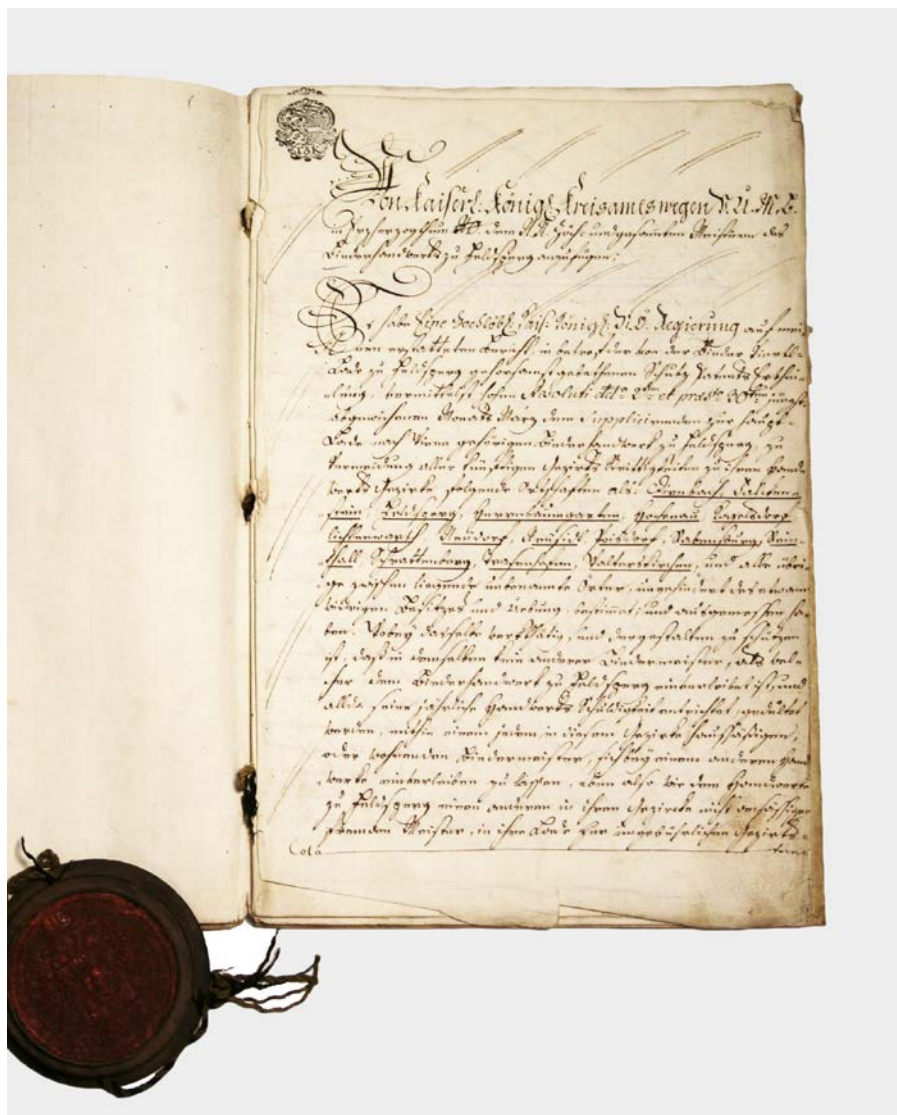 Von Kaiserl: Königl: Kreisamts wegen V. U. M. B.
in Erzherzogthum dem N. N. Zöch- und gesamten Meistern des
Binderhandwerks zu Feldsperg anzufügen;
Es habe Eine Hochlöbl: Kais: Königl: N: Ö: Regierung auf mei-
nen erstatteten Bericht, in betref der von der Binder Viertl-
Lade zu Feldsperg gehorsamst gebethenen Schutz Patents Erthei-
lung, vermittelst hohen Absoluti ddto et praes: 20ten jüngst-
abgewichenen Monats März dem Supplicirenden zur Haupt-
Lade nach Wienn gehörigen Binderhandwerk zu Feldsperg, zu
Vermeidung aller künftigen Gezirks Strittigkeiten zu ihren Hand-
werks Gezirke folgende Ortschaften als: Dirnbach, Falken-
stein, Feldsperg, Herrnbaumgarten, Hochenau, Hagelsdorf
Lichtenwarth, Neudorf, Neusidl, Poisdorf, Rabensburg, Rein-
thall, Schrattenberg, Drasenhofen, Walterskirchen, und alle übri-
ge zwischen liegende unbenannte Örter, ungehindert des etwann
widrigen Besitzes und Uebung, bestimmet, und ausgemessen ha-
ben. Wobey dasselbe werkthätig, und dergestalten zu schützen
ist, daß in demselben kein anderer Bindermeister, als wel-
cher dem Binderhandwerk zu Feldsperg einverleibet ist, und
allda seine jährliche Handwerks Schuldigkeit entrichtet, geduldet
werden, mithin einem jeden in diesem Gezirke haussässigen,
oder wohnenden Bindermeister, sich bey einem anderen Hand-
werke einverleiben zu lassen, eben also wie dem Handwerke
zu Feldsperg einen anderen in ihren Gezirke nicht
fremden Meister, in ihre Lade zur ungebührlichen Gezirks-